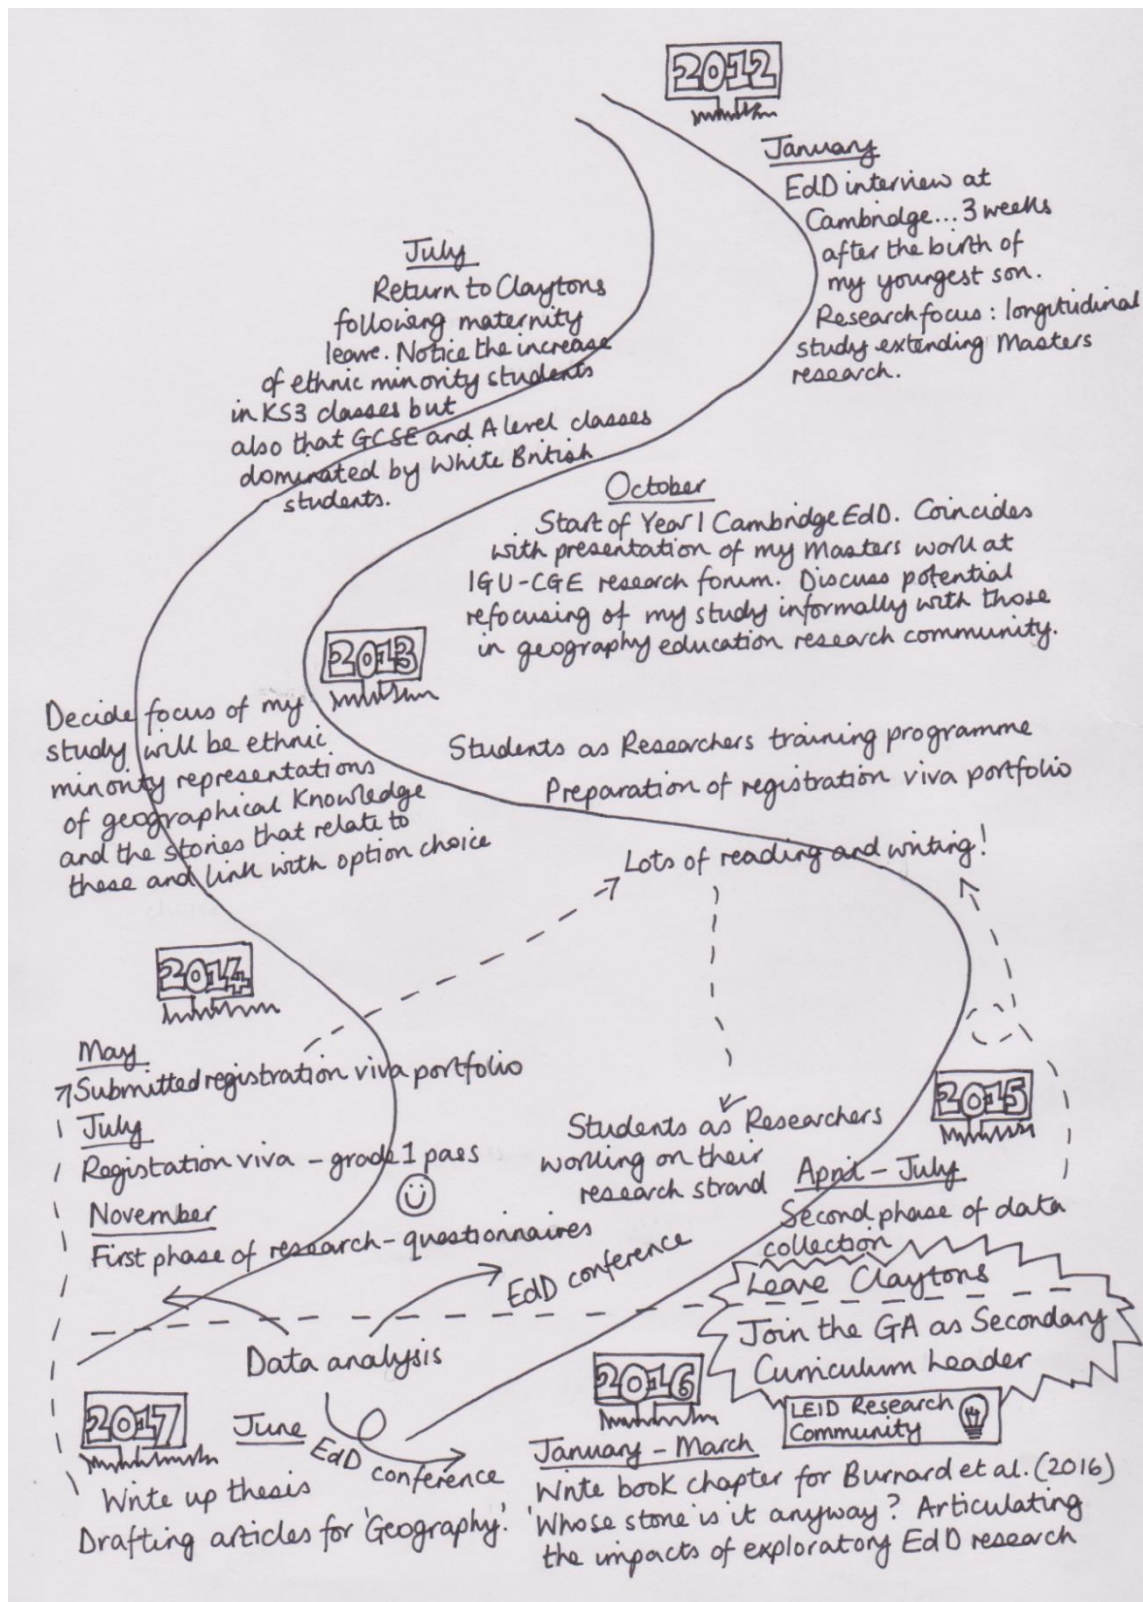 2012
January
EdD interview at
Cambridge... 3 weeks
after the birth of
my youngest son.
Research focus : longitudinal
study extending Masters
research.
July
Return to Claytons
following maternity
leave. Notice the increase
of ethnic minority students
in KS3 classes but
also that GCSE and A level classes
dominated by White British
students.
October
Start of Year 1 Cambridge EdD. Coincides
with presentation of my Masters work at
IGU-CGE research forum. Discuss potential
refocusing of my study informally with those
in geography education research community.
2013
Decide focus of my
study will be ethnic
minority representations
of geographical Knowledge
and the stories that relate to
these and link with option choice
Students as Researchers training programme
Preparation of registration viva portfolio
Lots of reading and writing!
2014
May
Submitted registration viva portfolio
July
Registation viva - grade 1 pass
November
First phase of research - questionnaires
Students as Researchers
working on their
research strand
2015
April - July
Second phase of data
collection
Leave Claytons
Join the GA as Secondary
Curriculum Leader
LEID Research
Community
EdD conference
Data analysis
2016
January - March
Write book chapter for Burnard et al. (2016)
'Whose stone is it anyway? Articulating
the impacts of exploratory EdD research
June
EdD conference
2017
Write up thesis
Drafting articles for 'Geography'.